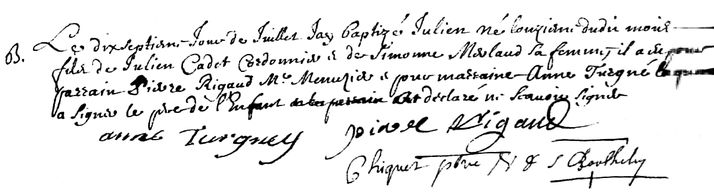 B. Le dix septieme Jour de Juillet Jay baptizé Julien né le onzieme dudit mois
fils de Julien Cadet Cordonnier & de Simonne Merlaud sa femme, il a eu pour
parrain Pierre Rigaud Mc Menuzier & pour marraine Anne Turgné laquelle
a signée le pere de l'Enfant et le parrain ont declaré ne scavoir signer
anne Turgney pierre Rigaud
Chiquet pbre V de S Barthely